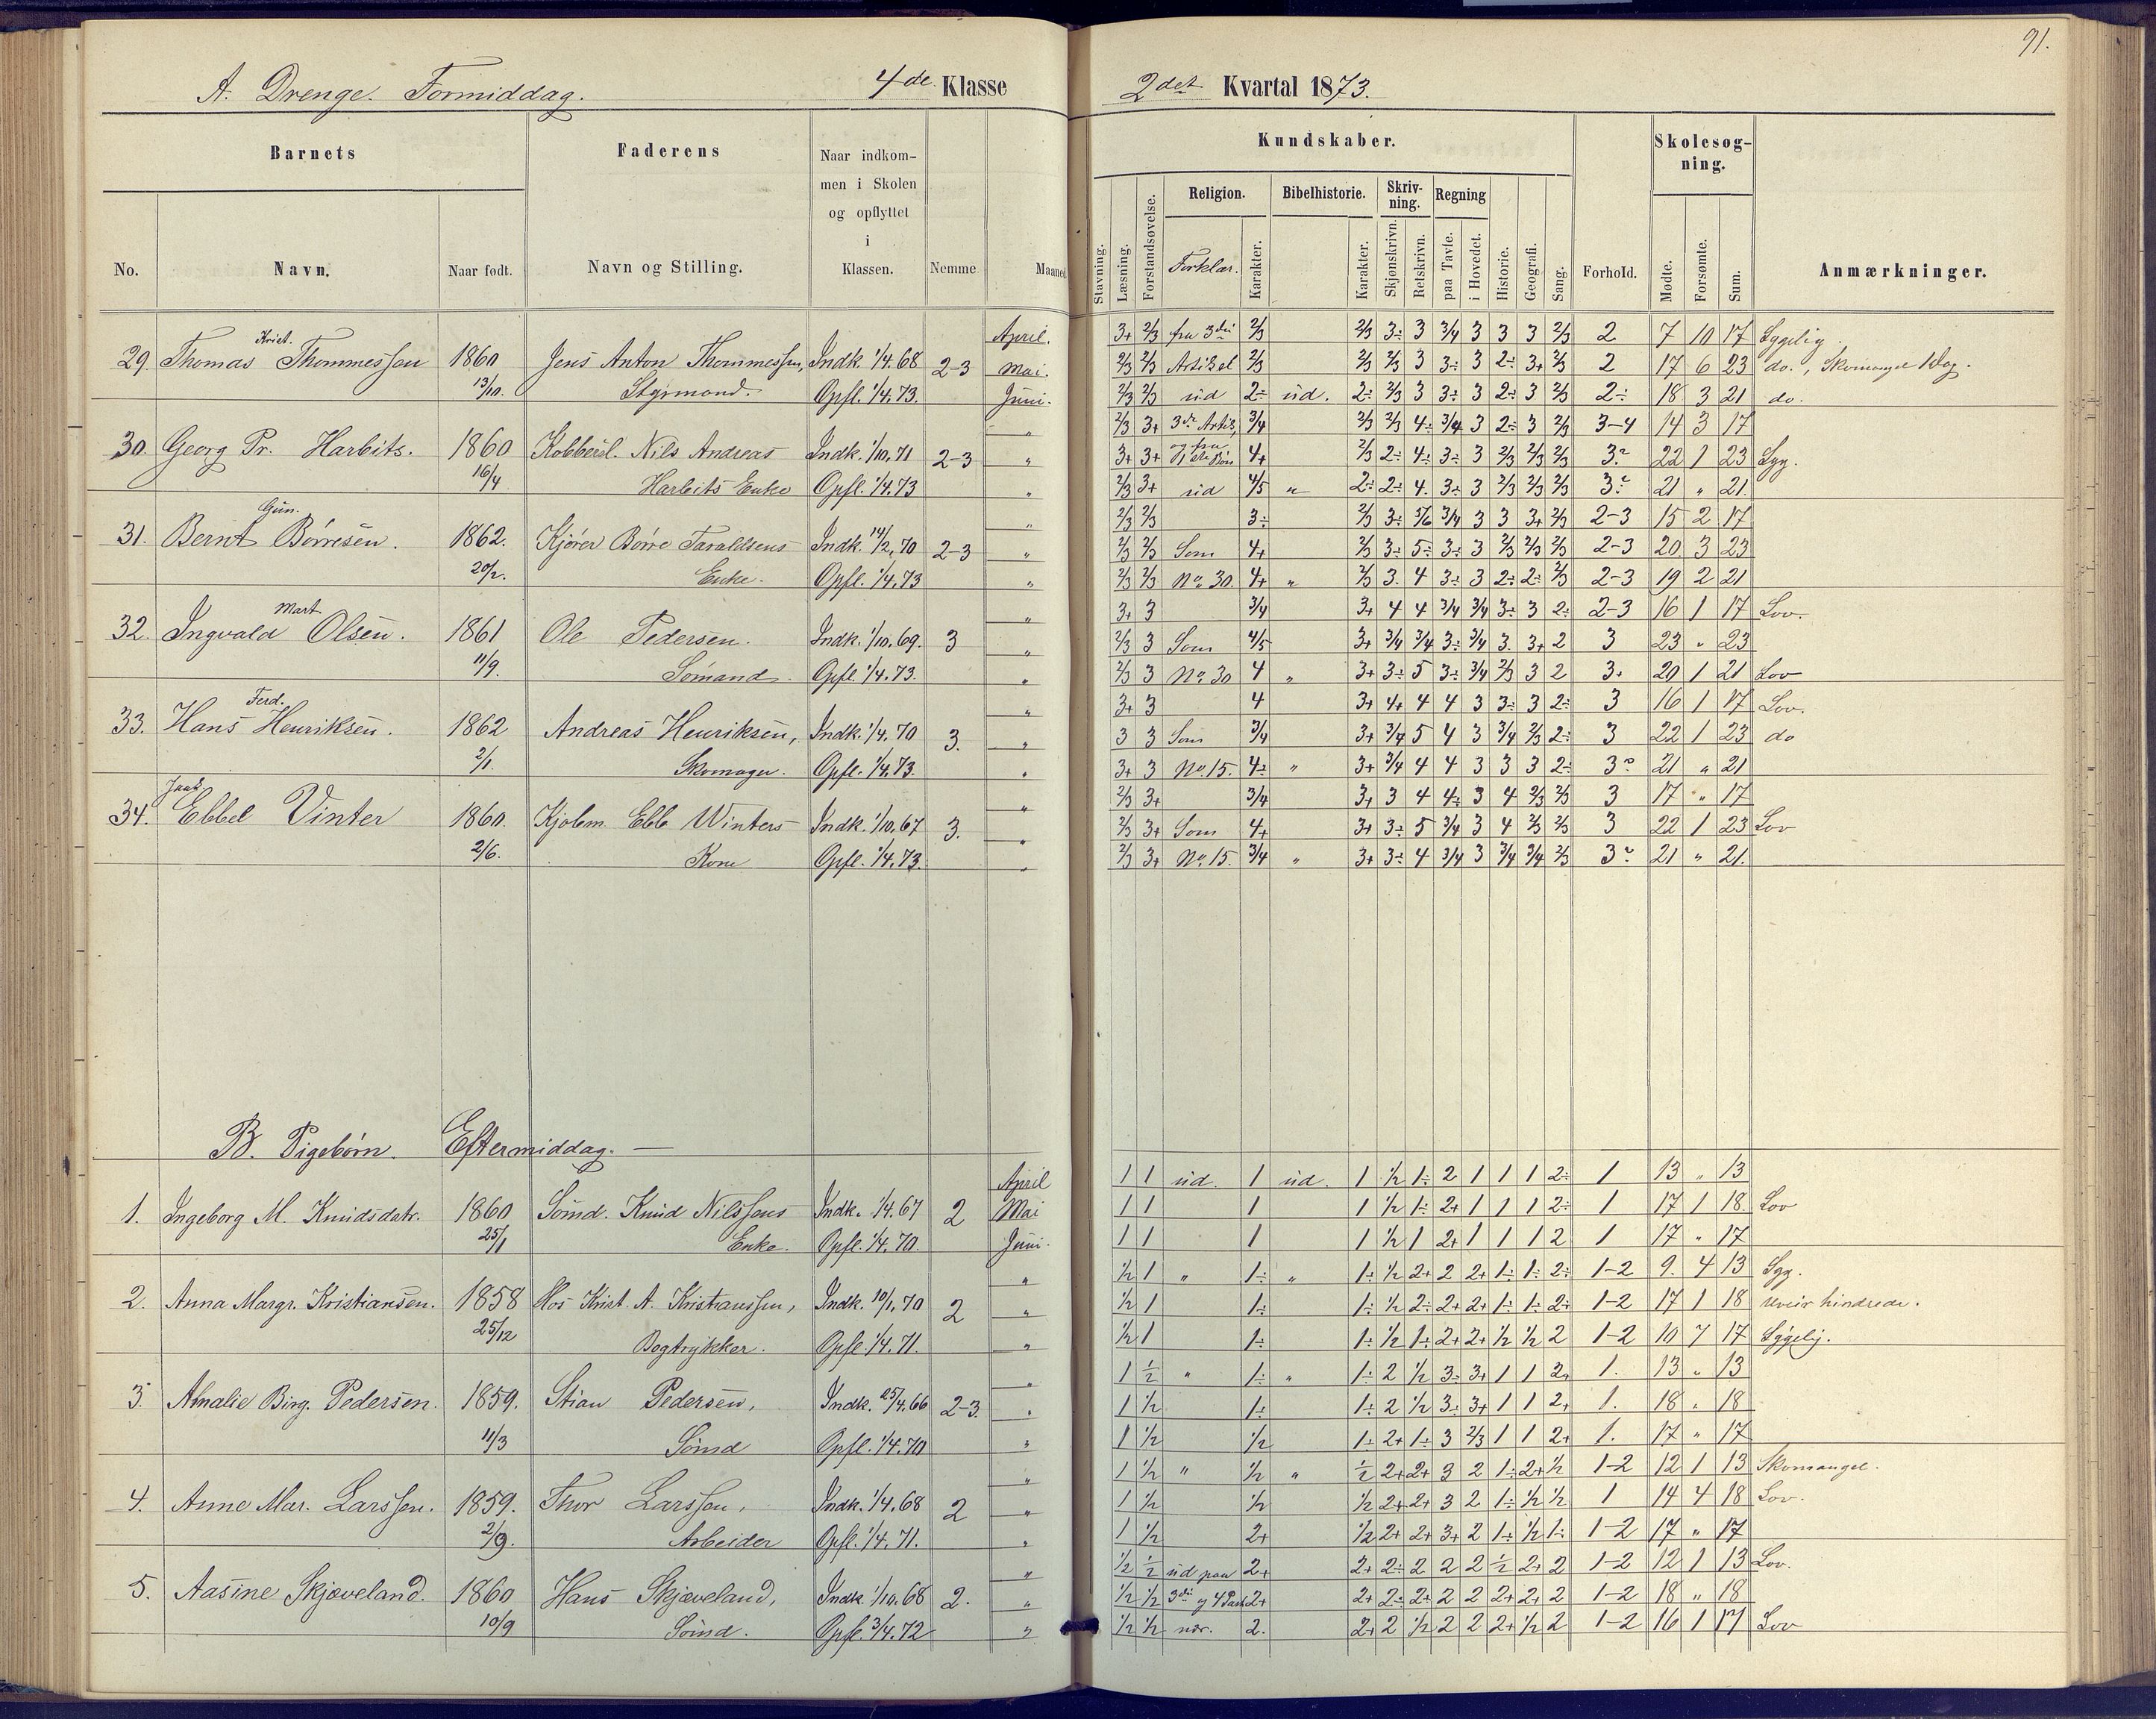 91.
A. Drenge. Formiddag. 4de Klasse 2det Kvartal 1873.
Barnets Faderens Naar indkommen i Skolen og opflyttet i Klassen. Nemme Maaned Kundskaber. Forhold. Skolesøgning. Anmærkninger.
No. Navn. Naar født. Navn og Stilling.
Stavning. Læsning. Forstandsøvelse. Religion. Forklar. Karakter. Bibelhistorie. Karakter. Skrivning. Skjønskrivn. Retskrivn. Regning paa Tavle. i Hovedet. Historie. Geografi. Sang. Mødte. Forsømte. Sum.
Krist. April. 3+ 2/3 fra 3die 2/3 2/3 3÷ 3 3/4 3 3 3 2/3 2 7 10 17 Sygelig.
29. Thomas Thommessen 1860 Jens Anton Thommessen, Indk. 1/4.68 2-3 Mai. 2/3 2/3 Artikel 2/3 2/3 2/3 3 3÷ 3 2÷ 3+ 2/3 2 17 6 23 do., Skomangel 1 Dag.
13/10. Styrmand. Opfl. 1/4.73. Juni. 2/3 2/3 ud 2÷ ud. 2÷ 2/3 3 3÷ 3 2÷ 3 2/3 2÷ 18 3 21 do.
" 2/3 3+ 3die Artik, 3/4 2/3 2/3 4÷ 3/4 3 2÷ 3 2/3 3-4 14 3 17
30. Georg Pr. Harbits. 1860 Kobbersl. Nils Andreas Indk. 1/10.71 2-3 " 3+ 3+ og fra 4+ 2/3 2÷ 4÷ 3÷ 3 2/3 2/3 2/3 3 22 1 23 Syg.
16/4 Harbits Enke Opfl. 1/4.73 " 2/3 3+ ud 4/5 " 2÷ 2÷ 4. 3÷ 3 2/3 2/3 2/3 3 21 " 21.
Gun. " 2/3 2/3 3÷ 2/3 3÷ 5/6 3/4 3 3 3+ 2/3 2-3 15 2 17
31. Bernt Børresen. 1862. Kjører Børre Taraldsens Indk. 14/2.70 2-3 " 2/3 2/3 Som 4+ 2/3 3÷ 5÷ 3÷ 3 2/3 2/3 2/3 2-3 20 3 23
20/2. Enke. Opfl. 1/4.73 " 2/3 2/3 No. 30. 4+ " 2/3 3. 4 3÷ 3 2÷ 2÷ 2/3 2-3 19 2 21
Mart. " 3+ 3 3/4 3+ 4 4 3/4 3/4 3÷ 3 2÷ 2-3 16 1 17 Lov.
32. Ingvald Olsen. 1861 Ole Pedersen. Indk. 1/10.69. 3 " 2/3 3 Som 4/5 3+ 3/4 3/4 3÷ 3/4 3. 3+ 2 3 23 " 23
11/9. Sømand. Opfl. 1/4.73. " 2/3 3 No. 30 4 " 3+ 3÷ 5 3÷ 3/4 2/3 3 2 3. 20 1 21 Lov
Ferd. " 3+ 3 4 3+ 4+ 4 4 3 3÷ 3 2÷ 3 16 1 17 Lov.
33. Hans Henriksen. 1862 Andreas Henriksen, Indk. 1/4.70 3. " 3 3 Som 3/4 3+ 3/4 5 4 3 3/4 2/3 2÷ 3 22 1 23 do
2/1. Skomager. Opfl. 1/4.73. " 3+ 3 No. 15. 4÷ " 3+ 3/4 4 4 3 3 3 2÷ 3 21 " 21
" 2/3 3+ 3/4 3+ 3 4 4÷ 3 4 2/3 2/3 3 17 " 17
34. Ebbel Vinter 1860. Kjøbm. Ebb. Winters Indk. 1/10.67 3. " 2/3 3+ Som 4+ 3+ 3÷ 5 3/4 3 4 2/3 2/3 3 22 1 23 Lov
2/6. Kone Opfl. 1/4.73. " 2/3 3+ No. 15. 3/4 " 3+ 3÷ 4 3/4 3 3/4 3/4 2/3 3 21 " 21.
B. Pigebørn. Eftermiddag.
April 1 1 ud. 1 ud. 1 1/2 1÷ 2 1 1 1 2÷ 1 13 " 13
1. Ingeborg M. Knudsdatr. 1860 Sømd. Knud Nilssens Indk. 1/4.67 2 Mai 1 1 1 1 1/2 1÷ 2+ 1 1 1 2÷ 1 17 1 18. Lov
25/1 Enke. Opfl. 1/4.70. Juni. 1 1 1 1 1/2 1 2+ 1 1 1 2 1 17 " 17
" 1/2 1 " 1÷ " 1÷ 1/2 2+ 2 2+ 1÷ 1÷ 2÷ 1-2 9. 4 13 Syg.
2. Anna Margr. Kristiansen. 1858 Hos Krist. A. Kristianssen, Indk. 10/1.70 2 " 1/2 1 1÷ 1÷ 1/2 2÷ 2+ 2+ 1÷ 1÷ 2÷ 1-2 17 1 18 Uveir hindrede.
25/12 Bogtrykker. Opfl. 1/4.71. " 1/2 1 1÷ 1÷ 1/2 1÷ 2+ 2+ 1/2 1/2 2 1-2 10 7 17 Sygelig.
" 1 1/2 " 1÷ " 1÷ 2 1/2 3÷ 3+ 1 1 2+ 1. 13 " 13
3. Amalie Birg. Pedersen. 1859. Stian Pedersen, Indk. 25/4.66 2-3. " 1 1/2 1÷ 1÷ 2 1/2 3÷ 3+ 1 1 2+ 1. 18 " 18
11/3 Sømd Opfl. 1/4.70 " 1 1/2 1/2 1÷ 2+ 1÷ 3 2/3 1 1 2+ 1. 17 " 17
" 1 1/2 " 1/2 " 1/2 2+ 2+ 3 2 1÷ 2+ 1/2 1-2 12 1 13 Skomangel.
4. Anne Mar. Larssen. 1859. Thor Larssen, Indk. 1/4.68 2 " 1 1/2 1/2 1/2 2+ 2+ 3 2 1÷ 1/2 1/2 1 14 4 18 Lov.
2/9. Arbeider Opfl. 1/4.71. " 1 1/2 2+ 1/2 2+ 2+ 3+ 2 1÷ 1/2 1÷ 1-2 17 " 17
" 1/2 1/2 ud paa 2+ 2+ 2÷ 2 2 2 1/2 2+ 2 1-2 12 1 13 Lov.
5. Aasine Skjæveland. 1860 Hans Skjæveland, Indk. 1/10.68 2. " 1/2 1/2 3die 2+ 2+ 2÷ 2÷ 2 2 2+ 2+ 2 1-2 18 " 18
10/9 Sømd. Opfl. 3/4.72 " 1/2 1/2 nær. 2. 2+ 2 1/2 2 2 2+ 1/2 2 1-2 16 1 17 Lov